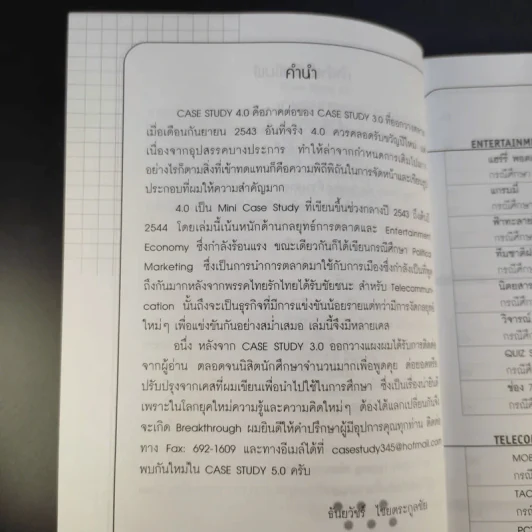 คำนำ
CASE STUDY 4.0 คือภาคต่อของ CASE STUDY 3.0 ที่ออกวางตลาด
เมื่อเดือนกันยายน 2543 อันที่จริง 4.0 ควรคลอดรับขวัญปีใหม่
เนื่องจากอุปสรรคบางประการ ทำให้ล่าจากกำหนดการเดิมไป
อย่างไรก็ตามสิ่งที่เข้าทดแทนก็คือความพิถีพิถันในการจัดหน้าและเรียง
ประกอบที่ผมให้ความสำคัญมาก
4.0 เป็น Mini Case Study ที่เขียนขึ้นช่วงกลางปี 2543 ถึงต้นปี
2544 โดยเล่มนี้เน้นหนักด้านกลยุทธ์การตลาดและ Entertainment
Economy ซึ่งกำลังร้อนแรง ขณะเดียวกันก็ได้เขียนกรณีศึกษา Political
Marketing ซึ่งเป็นการนำการตลาดมาใช้กับการเมืองซึ่งกำลังเป็นที่พูด
ถึงกันมากหลังจากพรรคไทยรักไทยได้รับชัยชนะ สำหรับ Telecommuni
cation นั้นถึงจะเป็นธุรกิจที่มีการแข่งขันน้อยรายแต่ทว่ามีการงัดกลยุทธ์
ใหม่ๆ เพื่อแข่งขันกันอย่างสม่ำเสมอ เล่มนี้จึงมีหลายเคส
อนึ่ง หลังจาก CASE STUDY 3.0 ออกวางแผงผมได้รับการติดต่อ
จากผู้อ่าน ตลอดจนนิสิตนักศึกษาจำนวนมากเพื่อพูดคุย ต่อยอดหรือ
ปรับปรุงจากเคสที่ผมเขียนเพื่อนำไปใช้ในการศึกษา ซึ่งเป็นเรื่องน่ายินดี
เพราะในโลกยุคใหม่ความรู้และความคิดใหม่ๆ ต้องได้แลกเปลี่ยนกันจึง
จะเกิด Breakthrough ผมยินดีให้คำปรึกษาผู้มีอุปการคุณทุกท่าน ติดต่อ
ทาง Fax: 692-1609 และทางอีเมล์ได้ที่ casestudy345@hotmail.com
พบกันใหม่ใน CASE STUDY 5.0 ครับ
ธันยวัชร์ ไชยตระกูลชัย
ENTERTAINM
แฮร์รี่ พอต
กรณีศึกษา
แกรมมี่
กรณีศึกษา
ฟ้าทะลาย
กรณีศึกษา
ทีมชาติ
กรณีศึกษา
นิตยสาร
กรณีศึกษา
วิจารณ์
กรณีศึกษา
QUIZ S
กรณีศึ
ช่อง 7
กรณีศึ
TELECO
MOB
กรณี
TAC
กรณี
PC